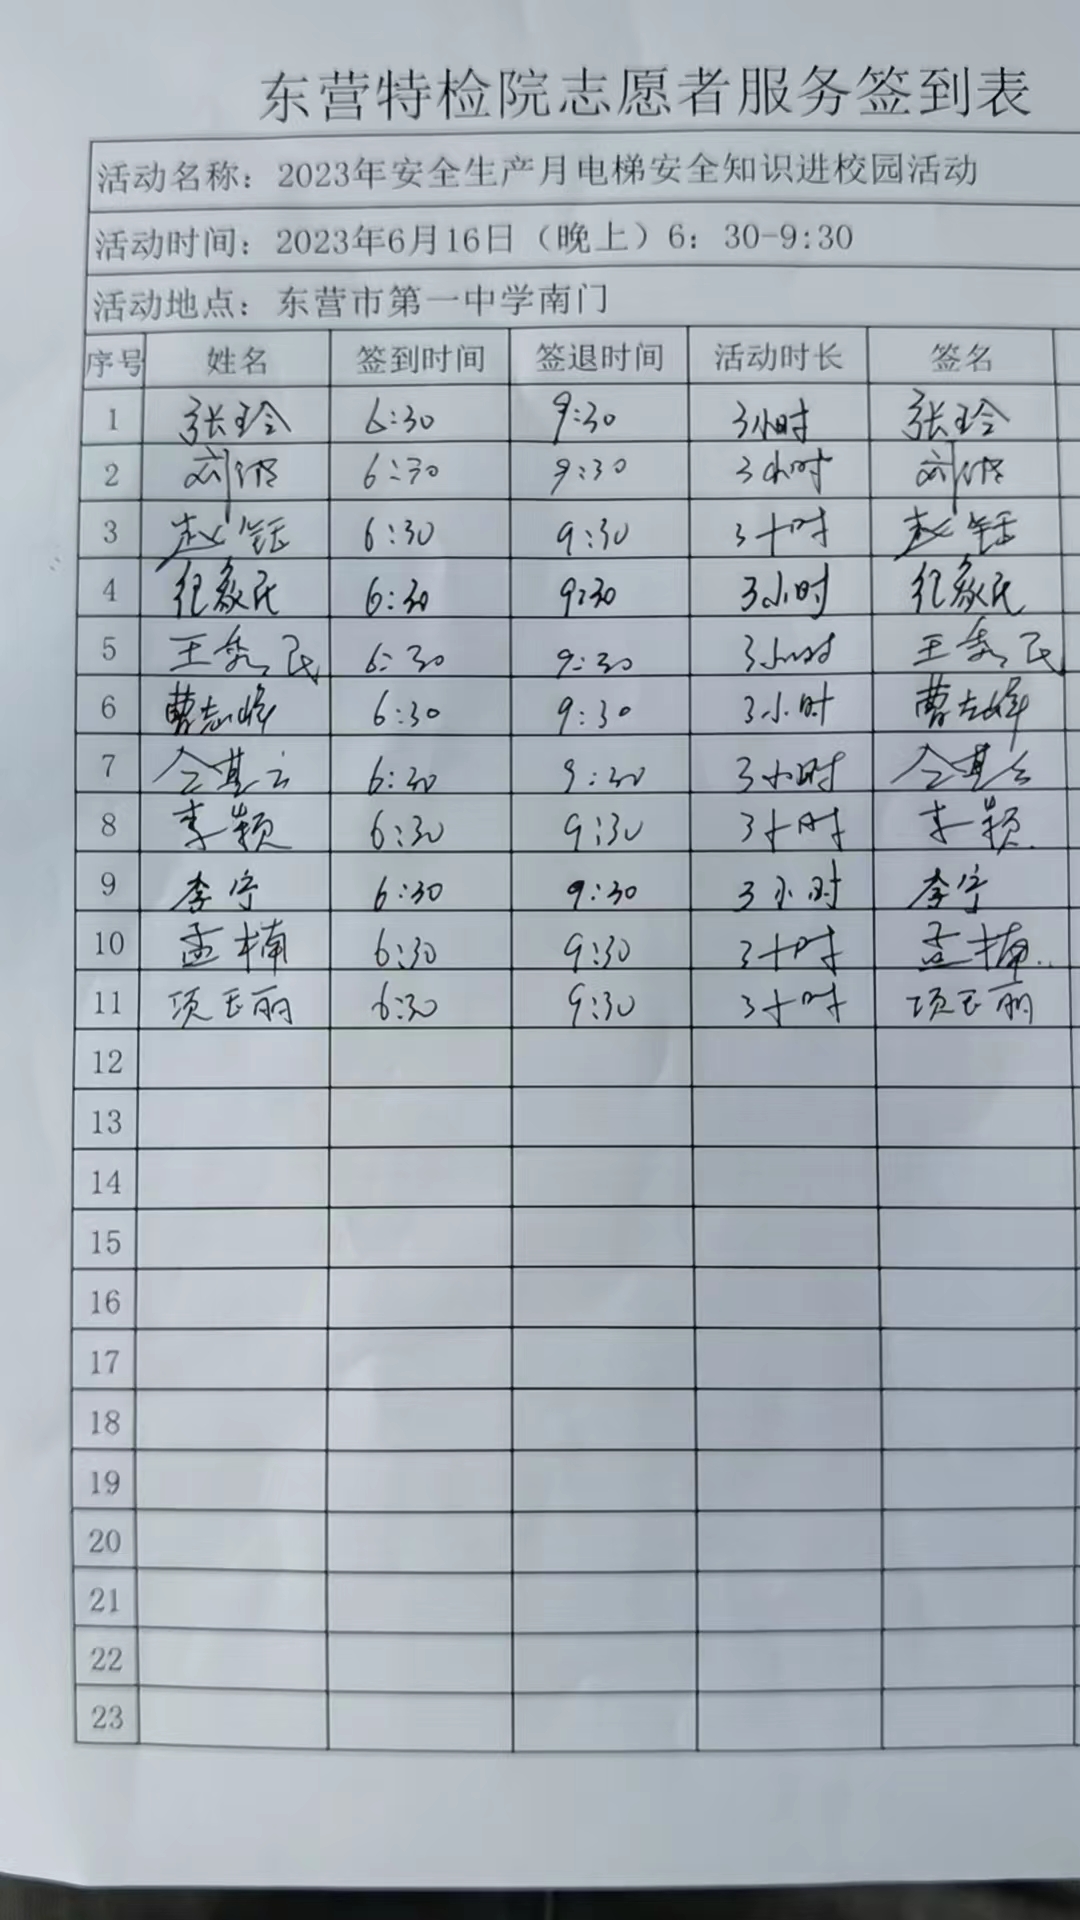 东营特检院志愿者服务签到表
活动名称：2023年安全生产月电梯安全知识进校园活动
活动时间：2023年6月16日（晚上）6：30-9:30
活动地点：东营市第一中学南门
序号 姓名 签到时间 签退时间 活动时长 签名
1 张玲 6:30 9:30 3小时 张玲
2 刘 6:30 9:30 3小时 刘
3 赵钰 6:30 9:30 3小时 赵钰
4 纪象民 6:30 9:30 3小时 纪象民
5 王秀民 6:30 9:30 3小时 王秀民
6 曹志峰 6:30 9:30 3小时 曹志峰
7 仝其云 6:30 9:30 3小时 仝其云
8 李颖 6:30 9:30 3小时 李颖
9 李宁 6:30 9:30 3小时 李宁
10 孟楠 6:30 9:30 3小时 孟楠
11 项玉丽 6:30 9:30 3小时 项玉丽
12
13
14
15
16
17
18
19
20
21
22
23